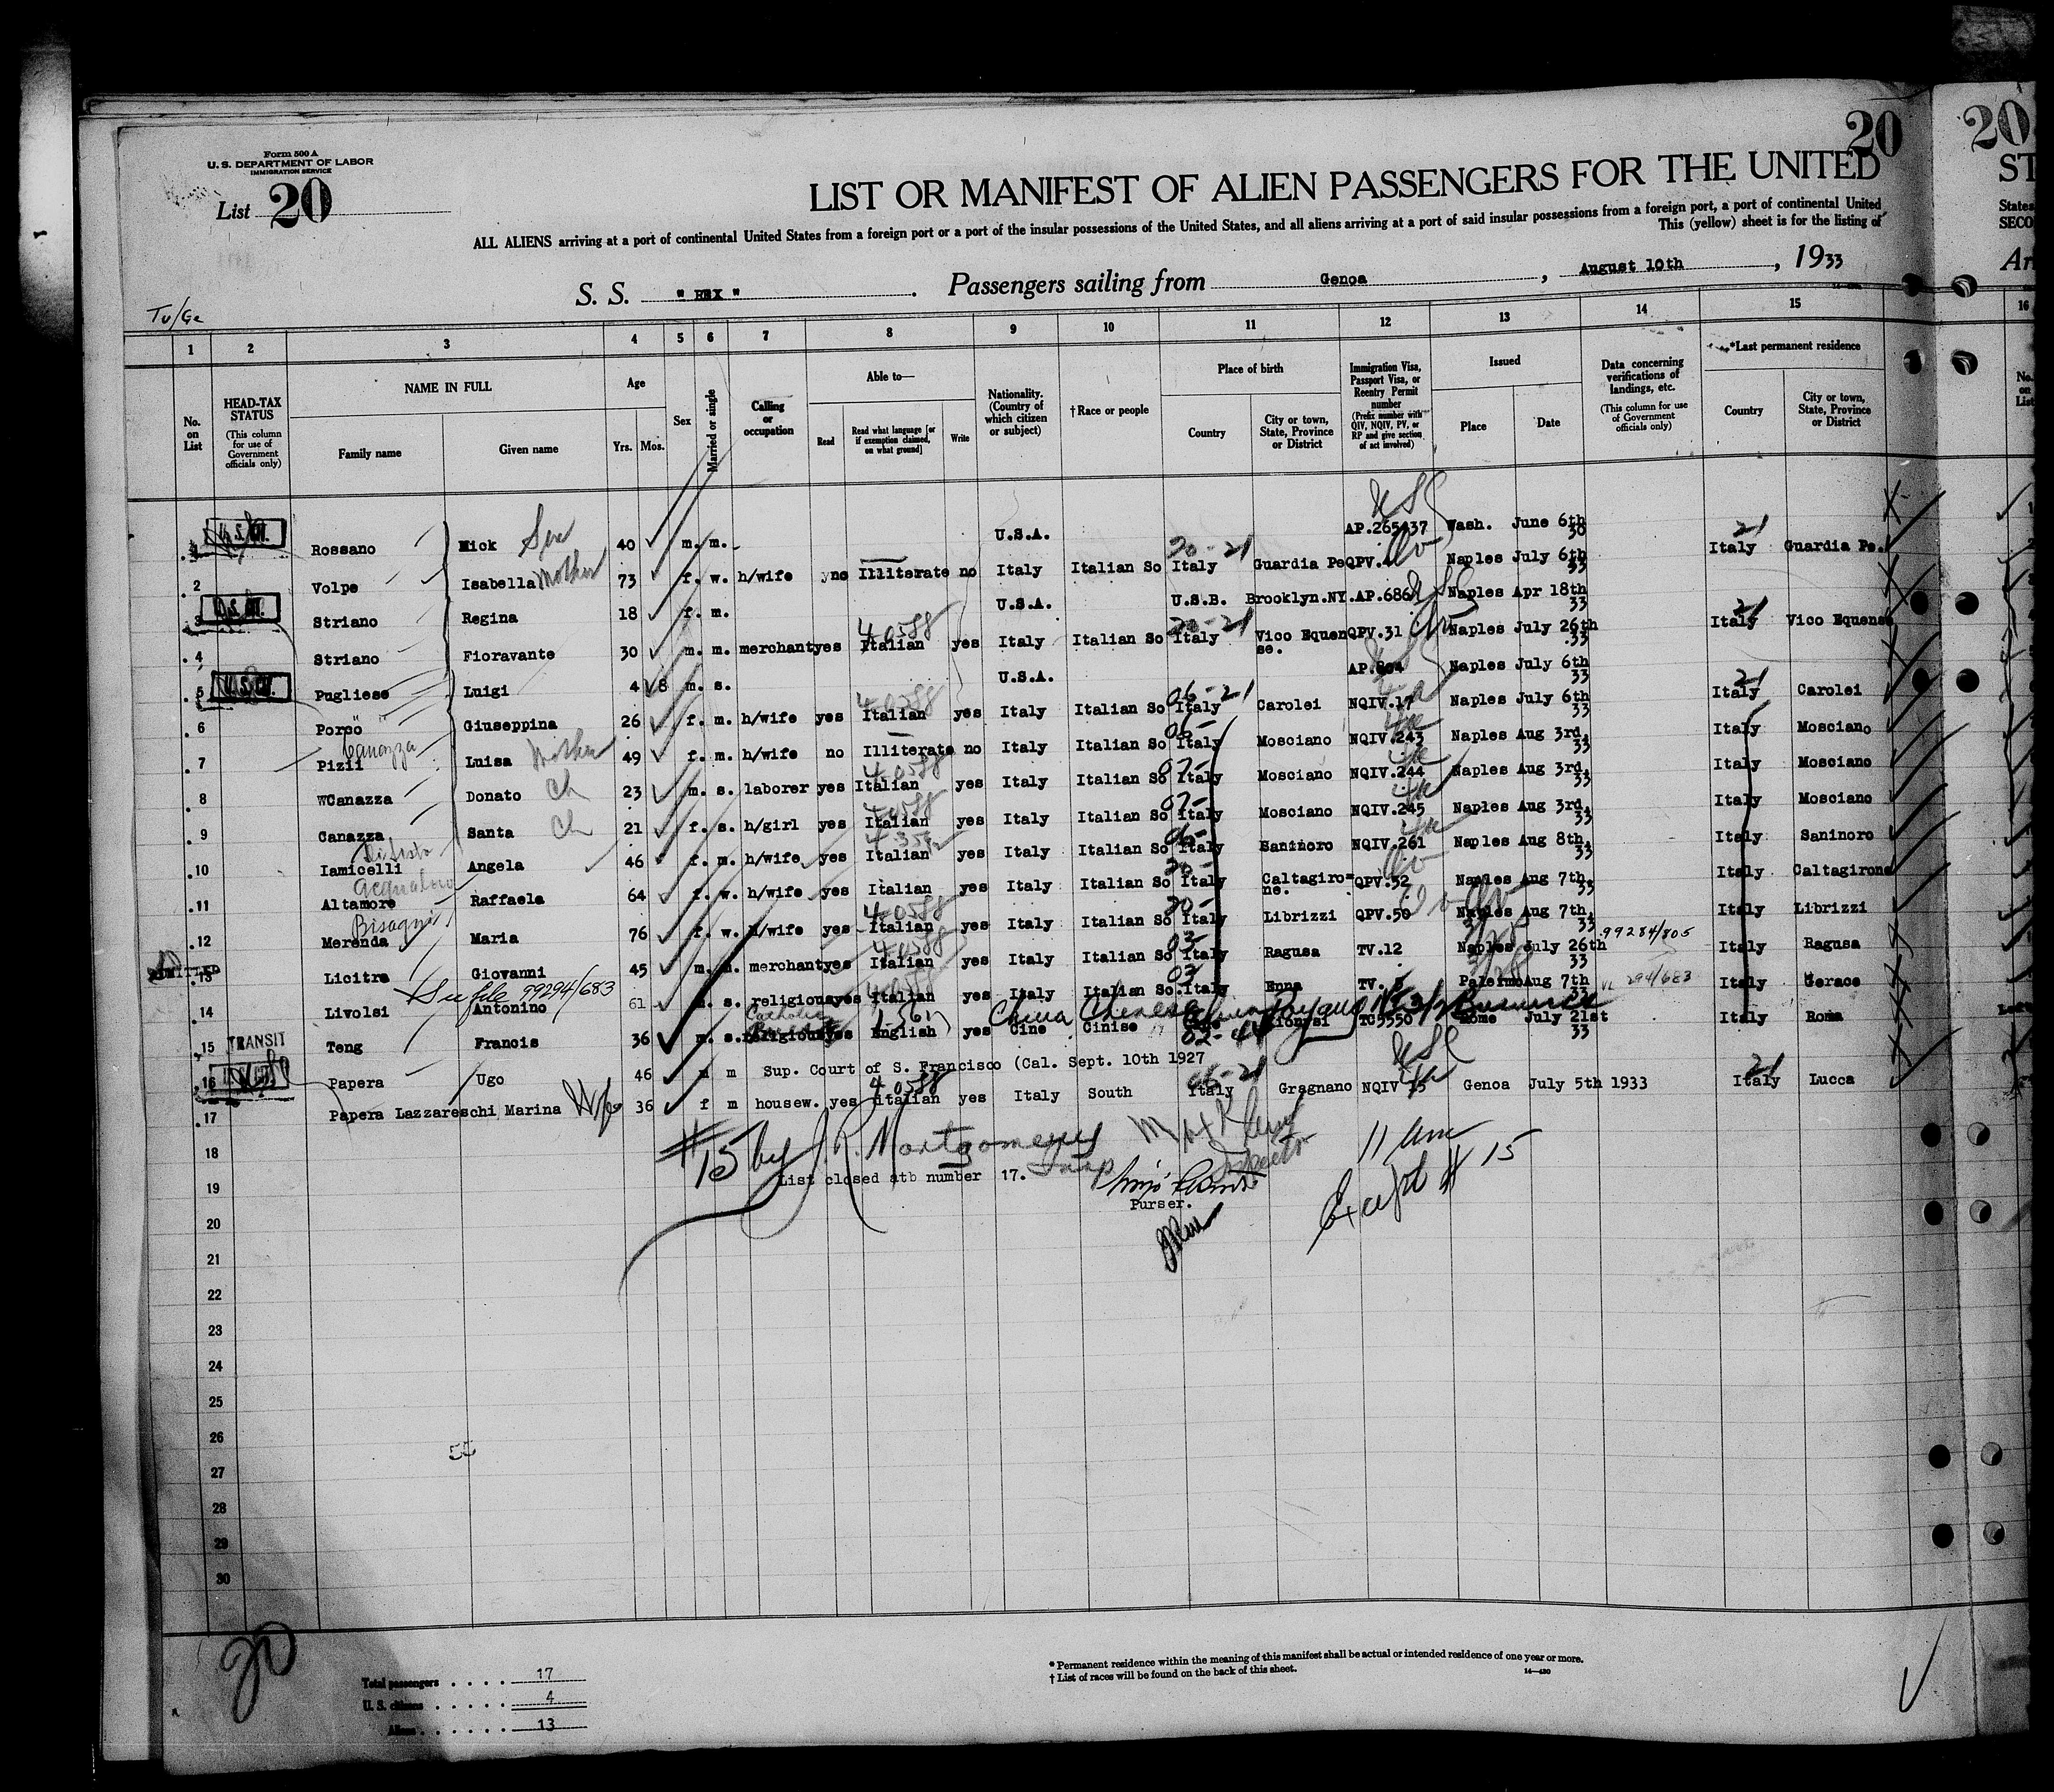 20
20
Form 500 A
U. S. DEPARTMENT OF LABOR
IMMIGRATION SERVICE
List 20
LIST OR MANIFEST OF ALIEN PASSENGERS FOR THE UNITED
ST
ALL ALIENS arriving at a port of continental United States from a foreign port or a port of the insular possessions of the United States, and all aliens arriving at a port of said insular possessions from a foreign port, a port of continental United
States
This (yellow) sheet is for the listing of
SECO
S. S. " REX " . Passengers sailing from Genoa , August 10th , 1933
Ar
Tu/Ge
1 2 3 4 5 6 7 8 9 10 11 12 13 14 15 16
No. on List
HEAD-TAX STATUS (This column for use of Government officials only)
NAME IN FULL
Family name
Given name
Age
Yrs. Mos.
Sex
Married or single
Calling or occupation
Able to—
Read
Read what language [or if exemption claimed, on what ground]
Write
Nationality. (Country of which citizen or subject)
†Race or people
Place of birth
Country
City or town, State, Province or District
Immigration Visa, Passport Visa, or Reentry Permit number (Prefix number with QIV, NQIV, PV, or RP and give section of act involved)
Issued
Place
Date
Data concerning verifications of landings, etc. (This column for use of Government officials only)
*Last permanent residence
Country
City or town, State, Province or District
No. on List
Rossano Mick 40 m. m. U.S.A. AP.265437 Wash. June 6th 30
2 Volpe Isabella Mother 73 f. w. h/wife no Illiterate no Italy Italian So Italy Guardia Pe QPV.4 Naples July 6th 33 Italy Guardia Pe.
3 Striano Regina 18 f. m. U.S.A. Brooklyn.NY. Naples Apr 18th 33
4 Striano Fioravante 30 m. m. merchant yes Italian yes Italy Italian So Italy Vico Equense. QPV.31 Naples July 26th 33 Italy Vico Equense
5 Pugliese Luigi 4 8 m. s. U.S.A. Naples July 6th 33
6 Porco Giuseppina 26 f. m. h/wife yes Italian yes Italy Italian So Italy Carolei NQIV.17 Naples July 6th 33 Italy Carolei
Canazza
7 Pizii Luisa Mother 49 f. m. h/wife no Illiterate no Italy Italian So Italy Mosciano NQIV.243 Naples Aug 3rd. 33 Italy Mosciano
8 WCanazza Donato Ch 23 m. s. laborer yes Italian yes Italy Italian So Italy Mosciano NQIV.244 Naples Aug 3rd. 33 Italy Mosciano
9 Canazza Santa Ch 21 f. s. h/girl yes Italian yes Italy Italian So Italy Mosciano NQIV.245 Naples Aug 3rd. 33 Italy Mosciano
10 Iamicelli Angela 46 f. m. h/wife yes Italian yes Italy Italian So Italy Saninoro NQIV.261 Naples Aug 8th. 33 Italy Saninoro
11 Altamore Raffaela 64 f. w. h/wife yes Italian yes Italy Italian So Italy Caltagirone. QPV.52 Naples Aug 7th. 33 Italy Caltagirone
Bisagni
12 Merenda Maria 76 f. w. h/wife yes Italian yes Italy Italian So Italy Librizzi QPV.50 Naples Aug 7th. 33 Italy Librizzi
13 Licitra Giovanni 45 m. m. merchant yes Italian yes Italy Italian So Italy Ragusa TV.12 Naples July 26th 33 99284/805 Italy Ragusa
See file 99294/683
14 Livolsi Antonino 61 m. s. religious yes Italian yes Italy Italian So Italy Enna Palermo Aug 7th 33 294/683 Italy Gerace
Catholic China Chinese
15 TRANSIT Teng Francis 36 m. s. religious yes English yes Cine Cinise TC5550 Rome July 21st 33 Italy Roma
16 Papera Ugo 46 m m Sup. Court of S. Francisco (Cal. Sept. 10th 1927
17 Papera Lazzareschi Marina Wife 36 f m housew. yes italian yes Italy South Italy Gragnano NQIV 15 Genoa July 5th 1933 Italy Lucca
18
#15 by J. R. Montgomery
Insp
11 am
Except # 15
19 List closed atb number 17.
Purser.
20
21
22
23
24
25
26
55
27
28
29
30
20
Total passengers . . . . 17
U. S. citizens . . . . . 4
Aliens . . . . . . 13
* Permanent residence within the meaning of this manifest shall be actual or intended residence of one year or more.
† List of races will be found on the back of this sheet. 14—430